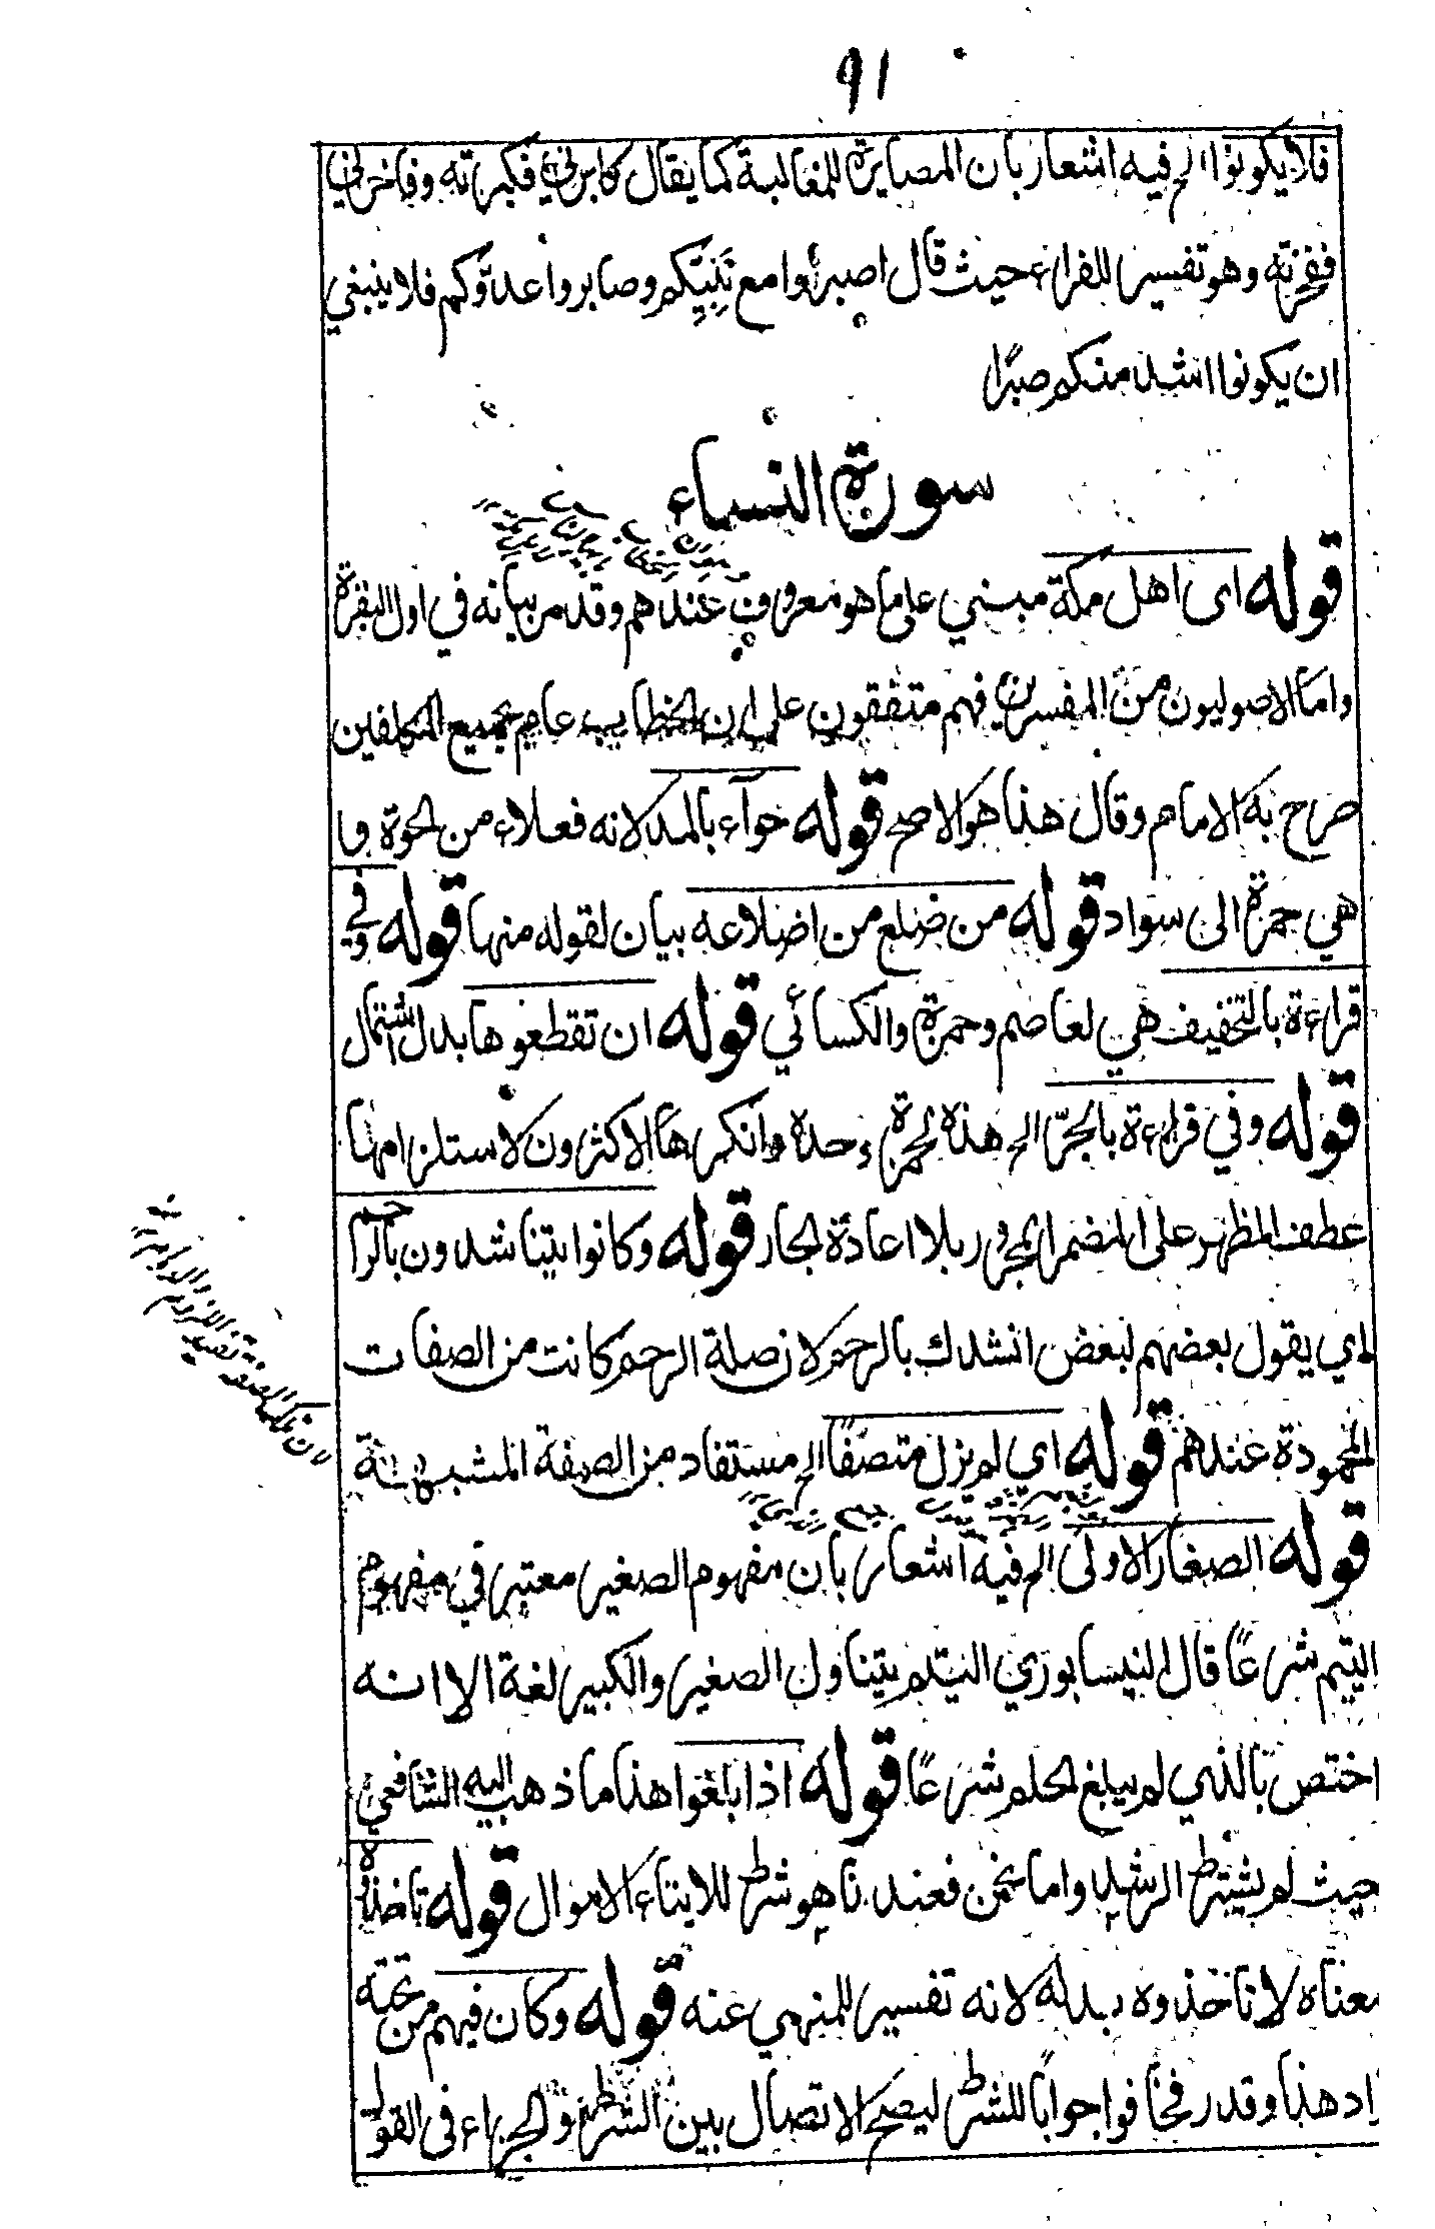 ٩١
فلا يكونوا الخ فيه اشعار بان المصابرة للمغالبة كما يقال كابرني فكبرته وفاخرني
ففخرته وهو تفسير للفراء حيث قال اصبروا مع نبيكم وصابروا عدوّكم فلا ينبغي
ان يكونوا اشد منكم صبرًا
سورة النساء
قوله اى اهل مكة مبني على ما هو معروف عندهم وقد مر بيانه في اول البقرة
واما الاصوليون من المفسرين فهم متفقون على ان الخطاب عام لجميع المكلفين
صرح به الامام وقال هذا هو الاصح قوله حوآء بالمد لانه فعلاء من الحوة و
هي حمرة الى سواد قوله من ضلع من اضلاعه بيان لقوله منها قوله وفي
قراءة بالتخفيف هي لعاصم وحمزة والكسائي قوله ان تقطعوها بدل اشتمال
قوله وفي قراءة بالجرّ الخ هذه لحمزة وحده وانكرها الاكثرون لاستلزامها
عطف المظهر على المضمر المجرور بلا اعادة الجار قوله وكانوا يتناشدون بالرحم
اي يقول بعضهم لبعض انشدك بالرحم لان صلة الرحم كانت من الصفات
المحمودة عندهم قوله اي لم يزل متصفًا الخ مستفاد من الصفة المشبهة
قوله الصغار الاولى الخ فيه اشعار بان مفهوم الصغير معتبر في مفهوم
اليتيم شرعًا قال النيسابوري اليتيم يتناول الصغير والكبير لغة الا انه
اختص بالذي لم يبلغ الحلم شرعًا قوله اذا بلغوا هذا ما ذهب اليه الشافعي
حيث لم يشترط الرشد واما نحن فعندنا هو شرط للايتاء الاموال قوله تاخذوه
معناه لا تاخذوه بدله لانه تفسير للمنهي عنه قوله وكان فيهم من تحته
زاد هذا وقدر فخافوا جوابًا للشرط ليصح الاتصال بين الشرط والجزاء في القول